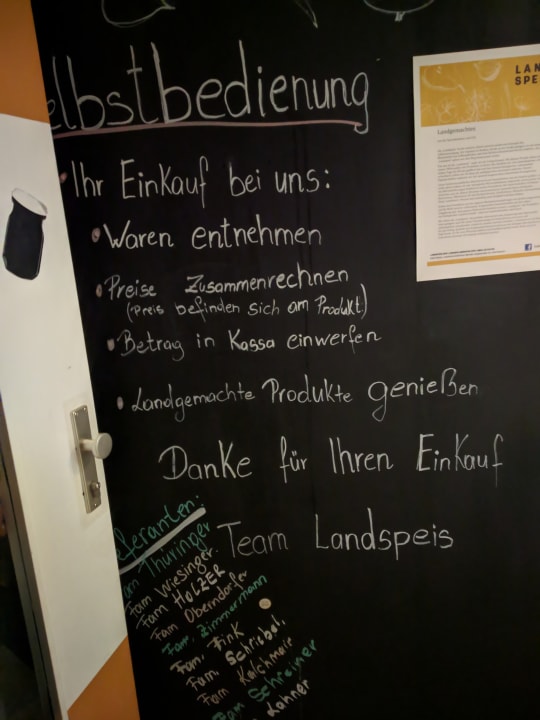 elbstbedienung
Ihr Einkauf bei uns:
Waren entnehmen
Preise Zusammenrechnen
(Preis befinden sich am Produkt)
Betrag in Kassa einwerfen
Landgemachte Produkte genießen
Danke für Ihren Einkauf
Team Landspeis
eferanten:
am Thüringer
Fam Wiesinger
Fam HOLZER
Fam Oberndorfer
Fam. Zimmermann
Fam. Fink
Fam. Schriebl.
Fam Kalchmair
Fam Schreiner
Lanner
LAN
SPE
Landgemachtes